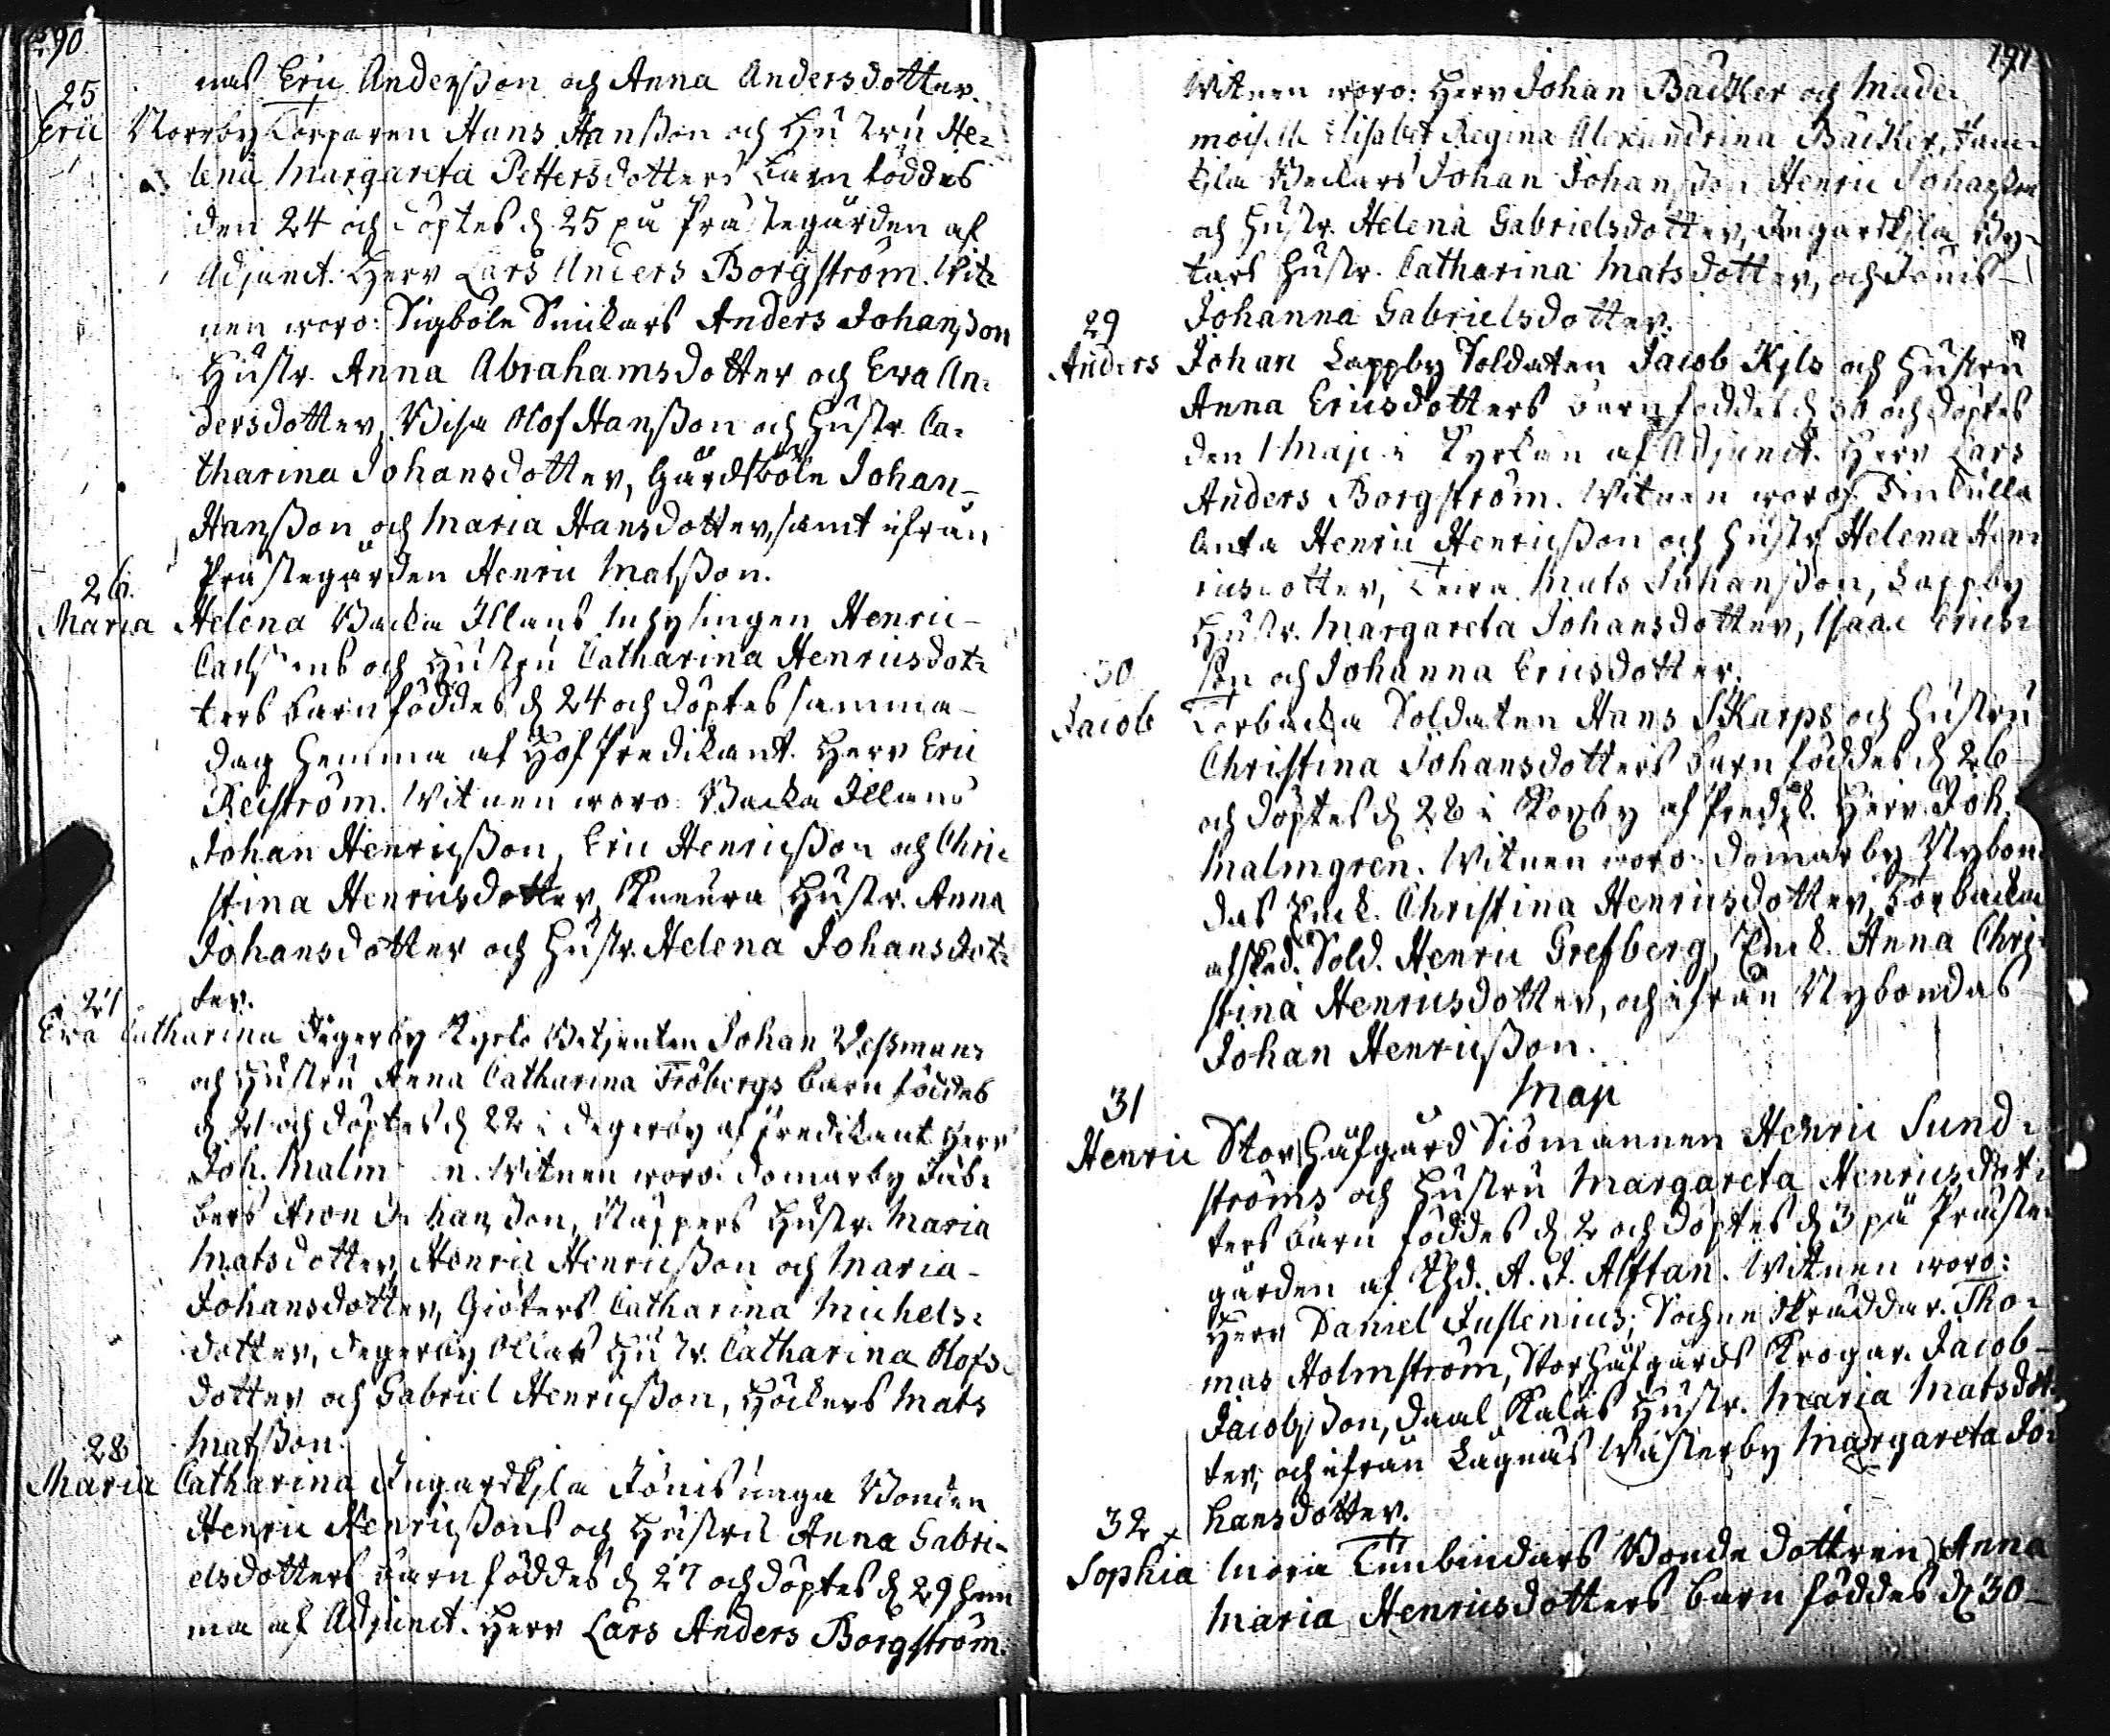 190
nas Eric Anderßon och Anna Andersdotter.
25
Eric Norrby Torparen Hans Hanßon och Hustru He=
lena Margareta Pettersdotters barn föddes
den 24 och döptes d. 25 på Prästegården af
Adjunct. Herr Lars Anders Borgström. Wit=
nen woro: Sigböle Smickars Anders Johanßon
Hustr. Anna Abrahamsdotter och Eva An=
dersdotter, Olof Hanßon och Hustr. Ca=
tharina Johansdotter, Gårdsböle Johan
Hanßon och Maria Hansdotter, samt ifrån
Prästegården Henric Matsßon.
26.
Maria Helena Backa Illans Inhysingen Henric
och Hustru Catharina Henricsdot=
ters barn föddes d. 24 och döptes samma
dag hemma af Hof Predikant. Herr Eric
Reiström. Witnen woro: Backa Illans
Johan Henricßon, Eric Henricßon och Chri=
stina Henricsdotter, Hustr. Anna
Johansdotter och Hustr. Helena Johansdot=
ter.
27
Eva Catharina Degerby Kyrko Betjenten Johan Weßmans
och Hustru Anna Catharina Fröbergs barn föddes
d. 21 och döptes d. 22 i Degerby af Predikant Herr
Joh. Malm n. Witnen woro: Domarby
Aron Johanßon, Hustr. Maria
Matsdotter, Henric Henricßon och Maria
Johansdotter, Catharina Michels=
dotter, Degerby Hustr. Catharina Olofs=
dotter och Gabriel Henricßon, Höckers Mats
Matsßon.
28
Maria Catharina Ingarskila Jönis unga Bonden
Henric Henricßons och Hustru Anna Gabri=
elsdotters barn föddes d. 27 och döptes d. 29 hem
ma af Adjunct. Herr Lars Anders Borgström.
191
Witnen woro: Herr Johan Bäcker och Made=
moiselle Elisabet Regina Alexandrina Bäcker,
Johan Johanßon Henric Johanßon
och Hustr. Helena Gabrielsdotter, Ingarskila
Hustr. Catharina Matsdotter, och Jönis
Johanna Gabrielsdotter.
29
Anders Johan Lappby Soldaten Jacob Kyls och Hustru
Anna Ericsdotters barn föddes d. 30 och döptes
den 1 Maji i Kyrkan af Adjunct. Herr Lars
Anders Borgström. Witnen woro: Finkulla
Anta Henric Henricßon och Hustr. Helena Hen=
ricsdotter, Mats Johanßon, Lappby
Hustr. Margareta Johansdotter, Isaac Erics=
son och Johanna Ericsdotter.
30
Jacob Torbacka Soldaten Hans Skarps och Hustru
Christina Johansdotters barn föddes d. 26
och döptes d. 28 i af Predik. Herr Joh.
Malmgren. Witnen woro: Domarby Nybon=
das Enk. Christina Henricsdotter, Torbacka
afsked. Sold. Henric Grefberg, Enk. Anna Chri=
stina Henricsdotter, och ifrån Nybondas
Johan Henricßon.
Maji
31
Henric Storhäfgård Siömannen Henric Sund=
ströms och Hustru Margareta Henricsdot=
ters barn föddes d. 2 och döptes d. 3 på Präste=
gården af A. J. Alftan. Witnen woro:
Herr Daniel Juslenius, Sochne Skräddar. Tho=
mas Holmström, Storhäfgårds Krögar. Jacob
Jacobßon, Daal Kalas Hustr. Maria Matsdot=
ter, och ifrån Lagnäs Wästerby Margareta Jo=
hansdotter.
32 x
Sophia Maria Tunbindars Bonde dottren Anna
Maria Henricsdotters barn föddes d. 30